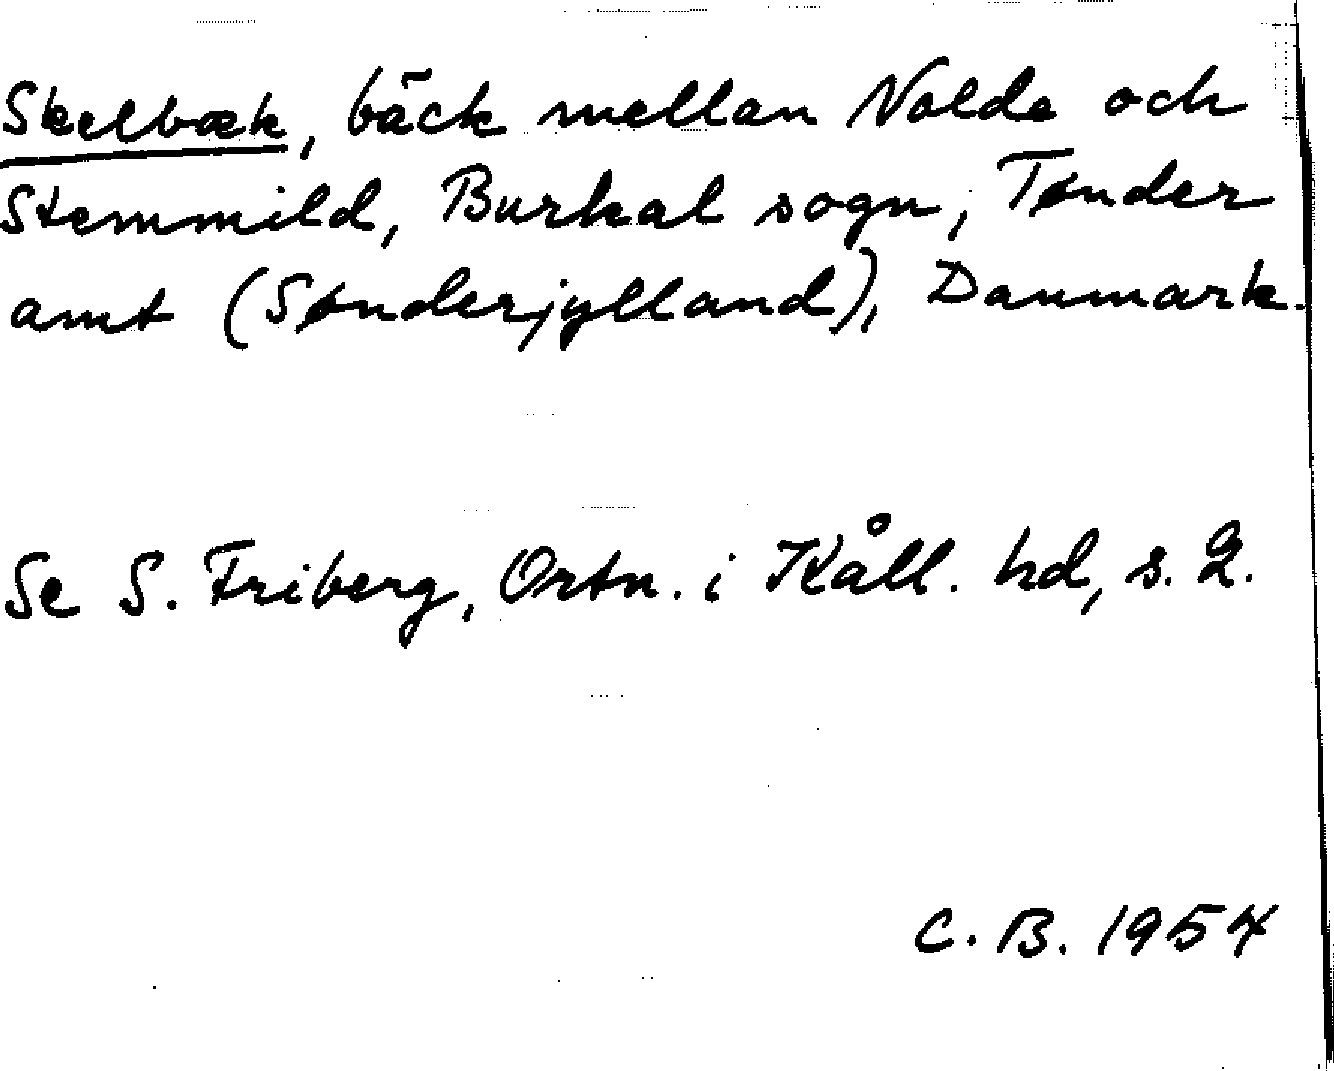 Skelbæk, bäck mellan Nolde och
Stemmild, Burkal sogn, Tønder
amt (Sønderjylland), Danmark.
Se S. Friberg, Ortn. i Kåll. hd, s. 2.
C. B. 1954